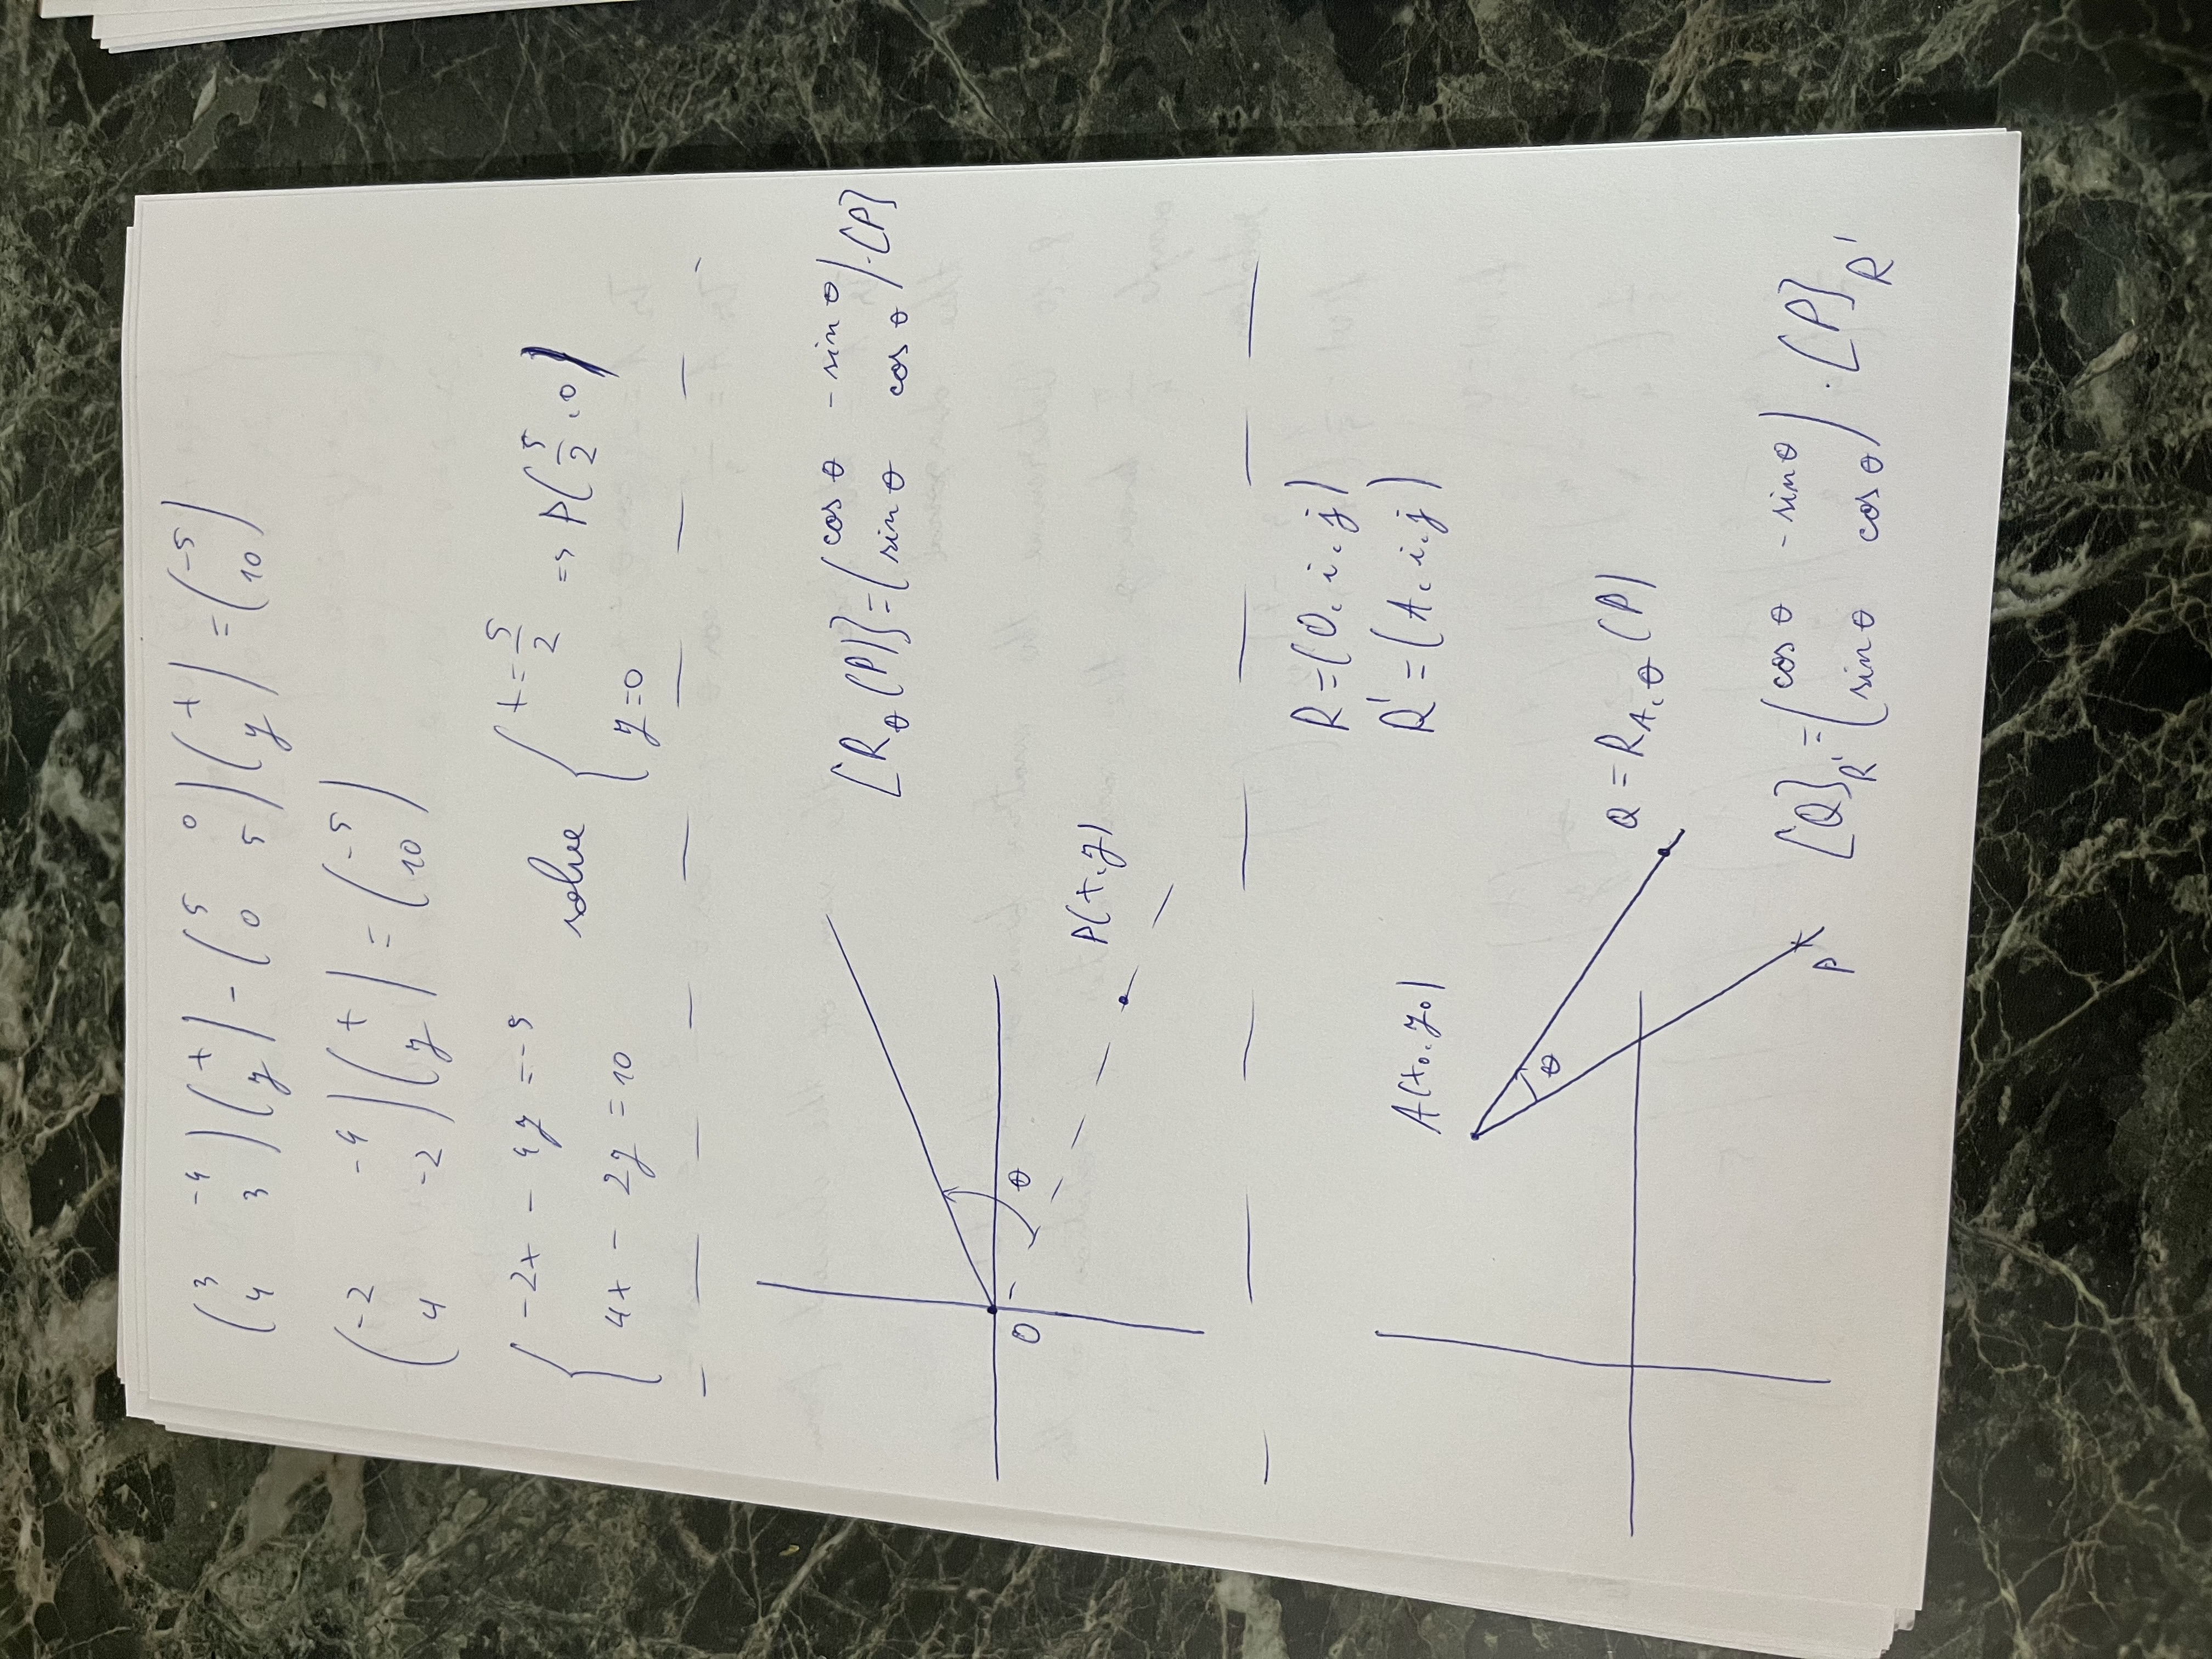 (3 -4 4 3)(x y) - (5 0 0 5)(x y) = (-5 10)
(-2 -4 4 -2)(x y) = (-5 10)
{ -2x - 4y = -5
4x - 2y = 10
solve
{ x = 5/2
y = 0
=> P(5/2, 0)
[R_θ(P)] = (cos θ -sin θ sin θ cos θ) · [P]
O
θ
P(x, y)
R = (O, i, j)
R' = (A, i, j)
A(x₀, y₀)
θ
Q = R_{A,θ}(P)
P
[Q]_{R'} = (cos θ -sin θ sin θ cos θ) · [P]_{R'}